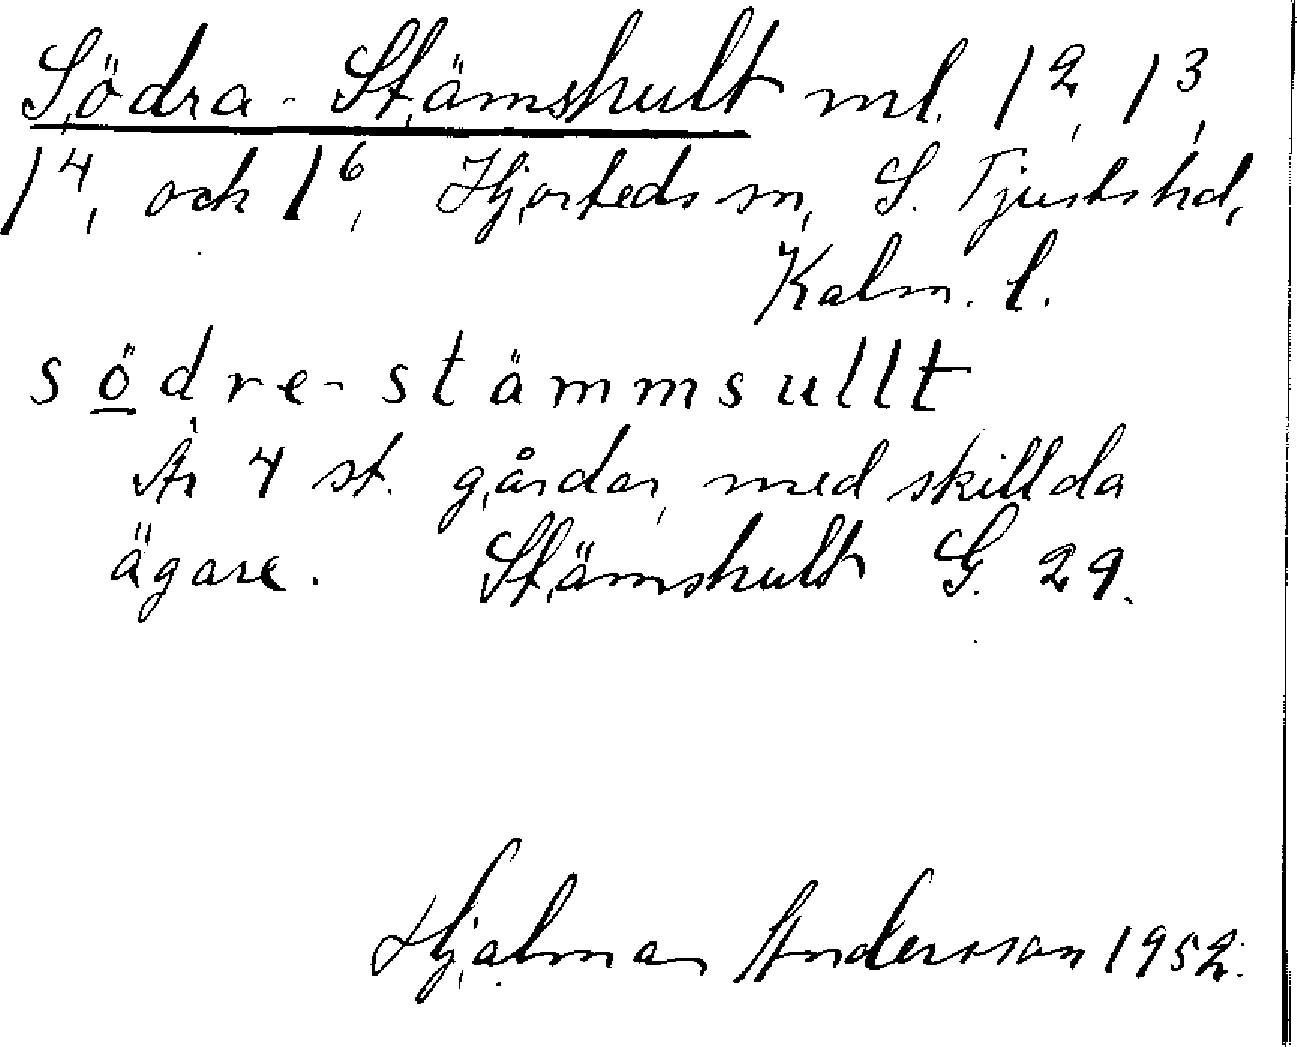 Södra-Stämshult ml. 1², 1³,
1⁴, och 1⁶, Hjorteds sn, S. Tjusts hd,
Kalm. l.
södre-stämmsullt
Är 4 st. gårdar, med skillda
ägare. Stämshult G. 29.
Hjalmar Andersson 1952.